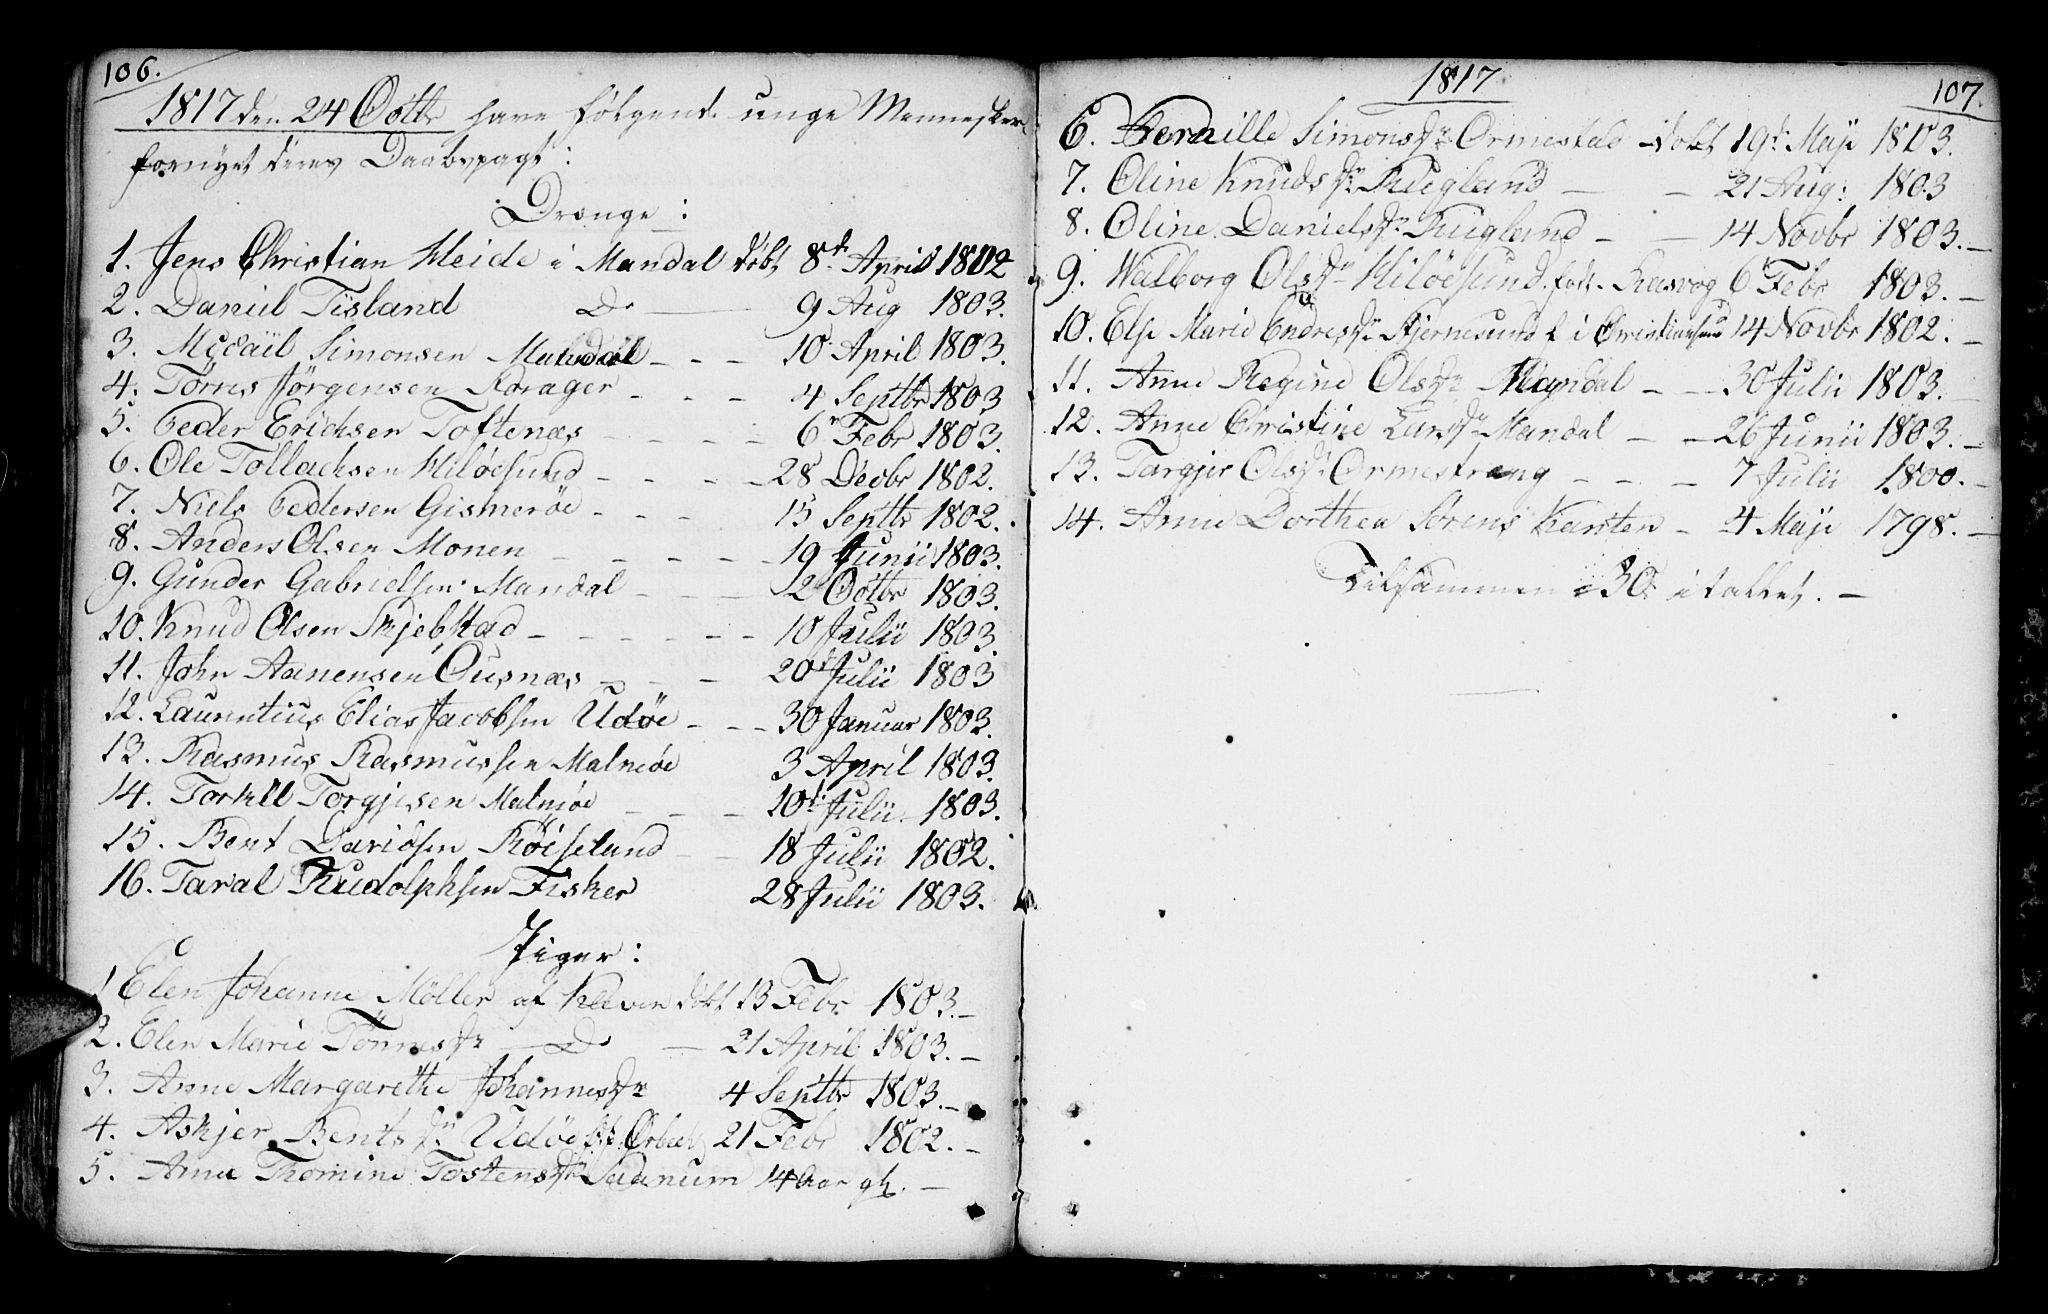 106.
1817 den 24 Octbr have følgende unge Mennesker
fornyet deres Daabspagt:
Drænge:
1. Jens Christian Heide i Mandal døbt 8de April 1802
2. Daniel Tisland Do — 9 Aug 1803.
3. Michäil Simonsen Mandal - - - 10 April 1803.
4. Törris Jörgensen - - - 4 Septbr 1803
5. Peder Erichsen Toftenæs - - - - 6 Febr 1803.
6. Ole Tollachsen Hiløesund - - - - 28 Decbr 1802.
7. Niels Pedersen Gismerøe - - - 15 Septbr 1802.
8. Anders Olsen Monen - - - - - 19 Junii 1803.
9. Gunder Gabrielsen Mandal - - - 2 Octbr 1803.
10. Knud Olsen Skjebstad - - - - - - 10 Julii 1803.
11. John Aanensen Ousnæs - - - 20d Julii 1803
12. Laurentius Elias Jacobsen Udöe - - - 30 Januar 1803.
13. Rasmus Rasmussen Malmöe 3 April 1803.
14. Torkell Torgjesen Malmöe - - - 10de Julii 1803.
15. Bent Davidsen Röiseland - - 18 Julii 1802.
16. Taral Rudolphsen Fisker 28 Julii 1803.
Piger:
1 Elen Johanne Möller af Kleven døbt 13 Febr 1803.-
2. Elen Marie Tönnesdr — Do — 21 April 1803.-
3. Anne Margarethe Johannesdr 4 Septbr 1803.-
4. Askjer Bentsdr Udöe 21 Febr 1802.-
5. Anne Thomine Tostensdr Sadnum 14 Aar gl. —
1817
107.
6. Pernille Simonsdr Ormestad - døbt 19de Maji 1803.
7. Oline Knudsdr Rugland — — 21 Aug: 1803
8. Oline Danielsdr Rugland — — 14 Novbr 1803.—
9. Walborg Olsdr Hiløesund. 6 Febr 1803.—
10. Else Marie Endresdr Hjernesund f i Christiansund 14 Novbr 1802.—
11. Anne Regine Olsdr Mandal — — 30 Julii 1803.
12. Anne Christine Larsdr Mandal — — 26 Junii 1803.—
13. Torgjer Olsdr Ormestrang - - — 7 Julii 1800.—
14. Anne Dorthea Sörens Karsten — 4 Maji 1798.—
Tilsammen 30 i tallet. —